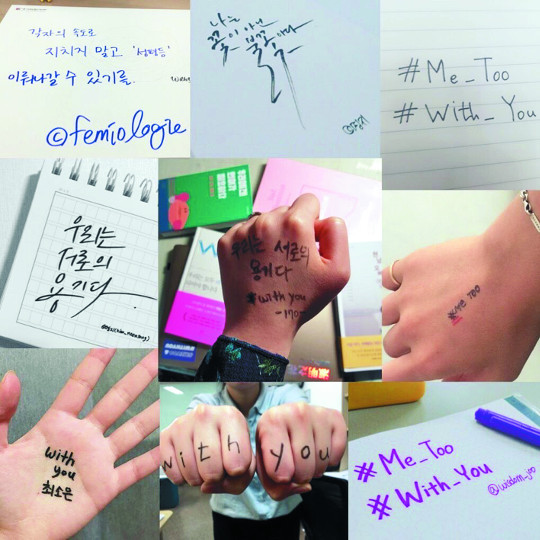 각자의 속도로
지치지 않고 '성평등'
이뤄나갈 수 있기를.
©femiologie
나는
꽃이 아닌
불꽃이다
#Me_Too
#With_You
우리는
서로의
용기다.
우리는 서로의
용기다
#with you
with
you
최소은
with you
#Me_Too
#With_You
@wisdom_joo